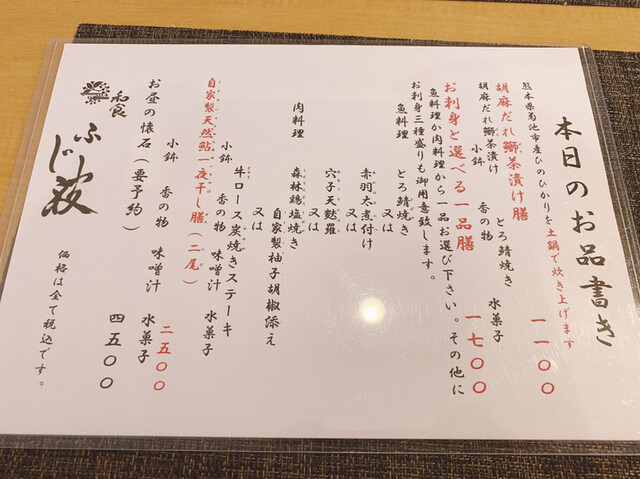 本日のお品書き
熊本県菊池市産ひのひかりを土鍋で炊き上げます
胡麻だれ鰤茶漬け膳 一一〇〇
胡麻だれ鰤茶漬け とろ鯖焼き
小鉢 香の物 水菓子
お刺身と選べる一品膳 一七〇〇
魚料理か肉料理から一品お選び下さい。その他に
お刺身三種盛りも御用意致します。
魚料理 とろ鯖焼き
又は
赤羽太煮付け
又は
穴子天麩羅
又は
肉料理 森林鶏塩焼き
自家製柚子胡椒添え
又は
牛ロース炭焼きステーキ
小鉢 香の物 味噌汁 水菓子
自家製天然鮎一夜干し膳(二尾) 二五〇〇
小鉢 香の物 味噌汁 水菓子
お昼の懐石(要予約) 四五〇〇
価格は全て税込です。
和食
ふじ